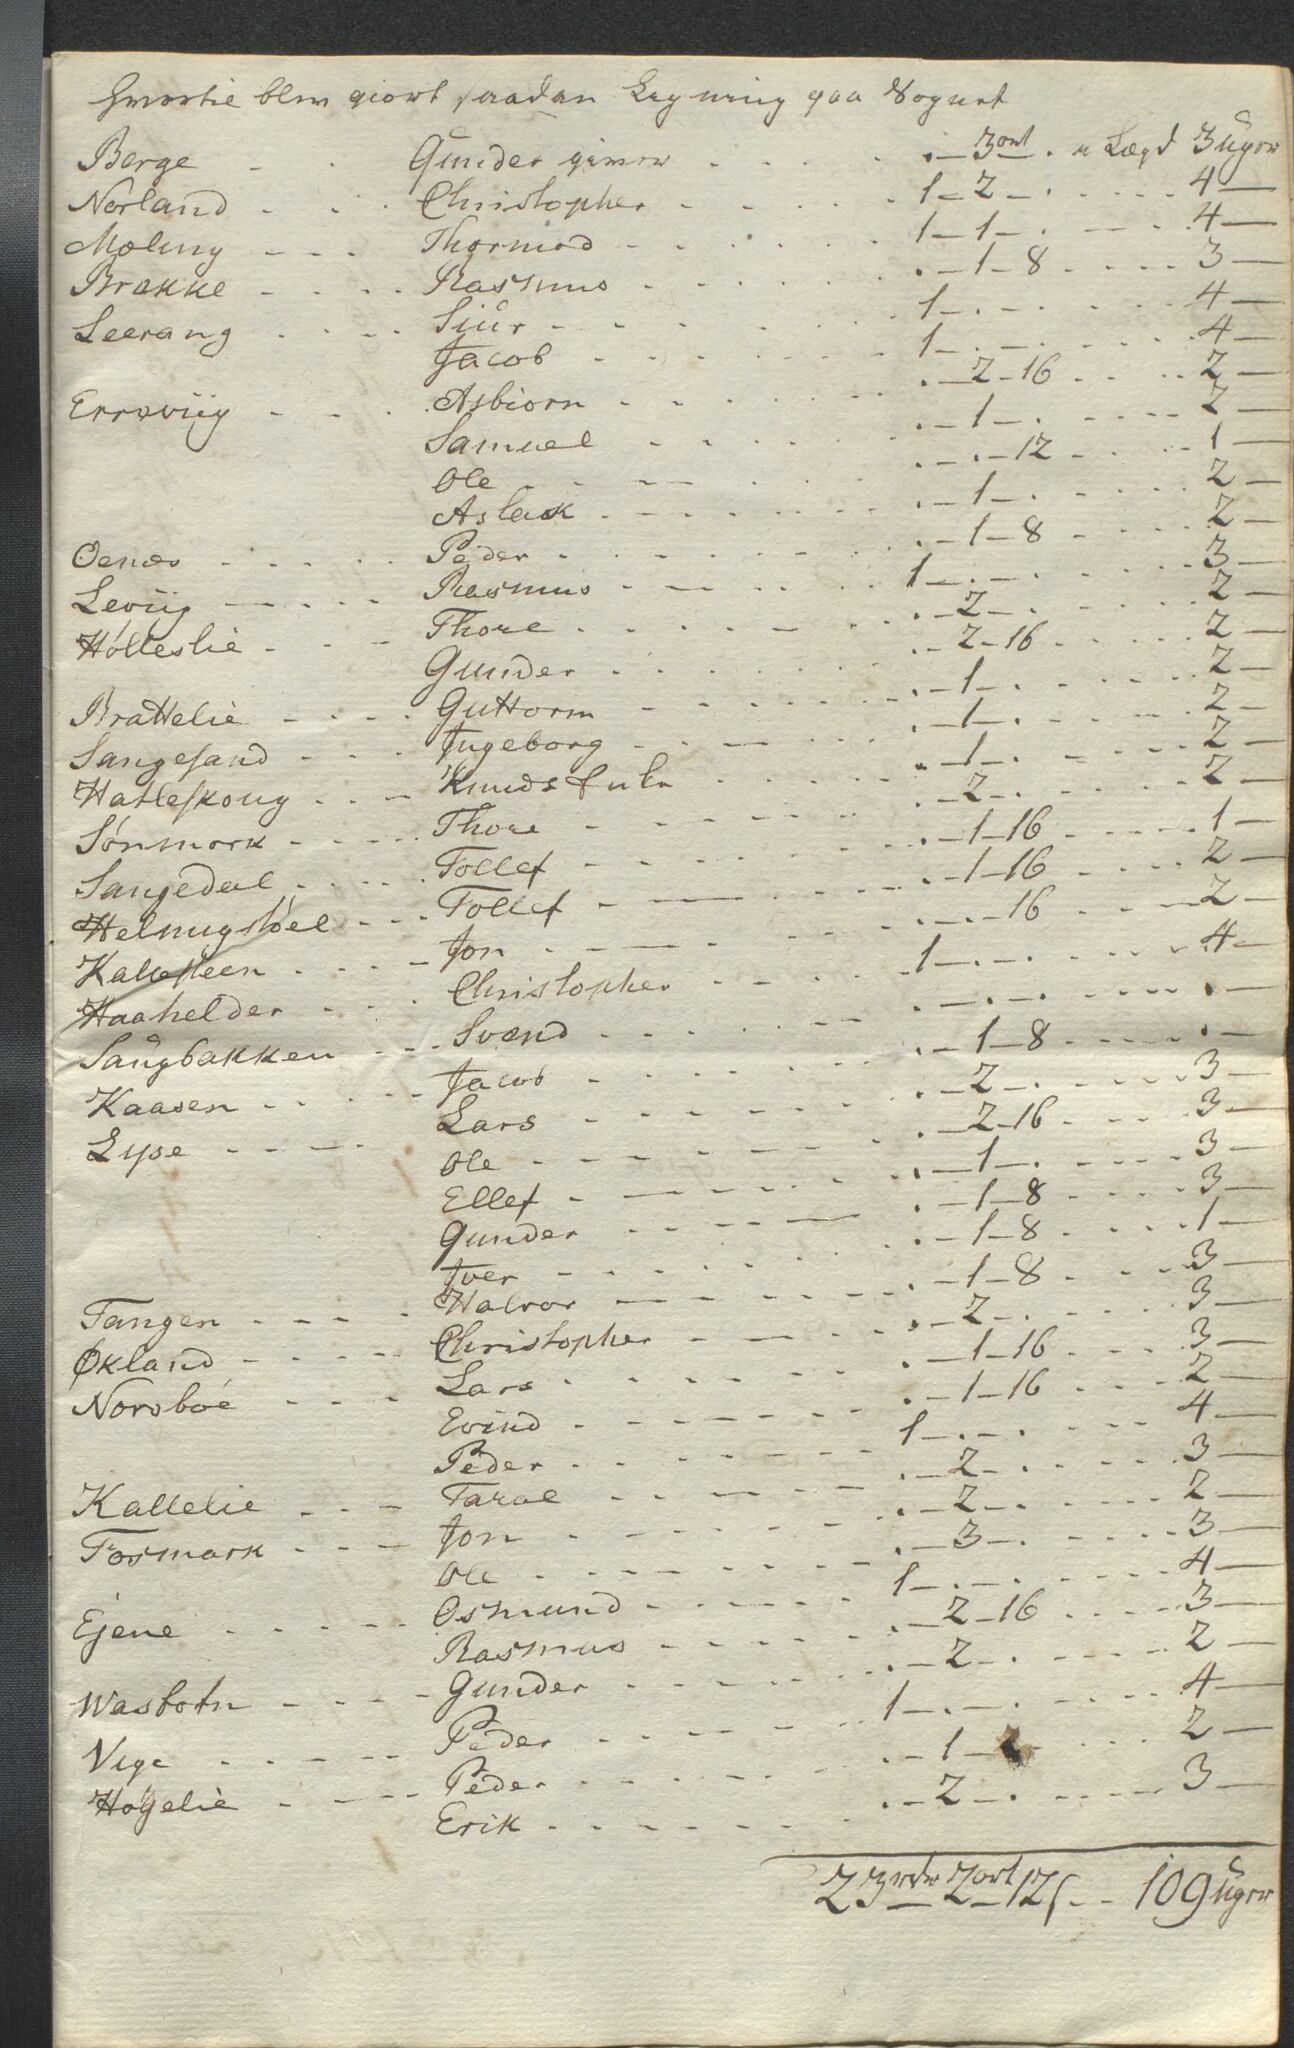 Hvorefter blev giort saadan Ligning paa Sognet
Berge - . Gunder giver . . . . - 3ort - . a Lægd 3 Uger
Norland . . . Christopher . . . . 1 - 2 - . . . . 4 -
Mæling - - - Thormod - - . . 1 - 1 - . . . . 4 -
Brække . . . Rasmus . . . . . - 1 - 8 . . . 3 -
Leerang . . . Siur - - - . 1 - . - . . . . 4 -
Jacob . . . . 1 - . - . . . . 4 -
Errwviig - . . Asbiorn . . . . . - 2 - 16 . . . 2 -
Samuel . . . . . - 1 - . . . . 2 -
Ole . . . . . - . - 12 . . . 1 -
Aslak . . . . . - 1 - . . . . 2 -
Oenæs . . . Peder . . . . . - 1 - 8 . . . 2 -
Leviig - - . Rasmus - - - . 1 - . - . . . . 3 -
Hölleslie . . - Thore . . . . . - 2 - . . . . 2 -
Gunder . . . . . - 2 - 16 . . . 2 -
Brattelie - - . Guttorm - . . . . - 1 - . . . . 2 -
Sangesand . . . Ingeborg . . . . . - 1 - . . . . 2 -
Hatleskoug . . - Knuds Enke . . . . - 1 - . . . . 2 -
Sønmork - - . Thore . . . . . - 2 - . . . . 2 -
Sangedal . . . Tollef - - - . . - 1 - 16 . . . 1 -
Helmigstöel - - . Tollef - - - . . - 1 - 16 . . . 2 -
Kallesteen . . - Jon . . . . . - . - 16 . . . 2 -
Haahelder . . . Christopher . . . 1 - . - . . . . 4 -
Saugbakken - - . Svend . . . . . - . - . . . . . -
Kaasen . . - Jacob . . . . . - 1 - 8 . . . . -
Lyse - - - Lars - - - . . - 2 - . . . . 3 -
Ole - - - . . - 2 - 16 . . . 3 -
Ellef - - - . . - 1 - . . . . 3 -
Gunder - - - . . - 1 - 8 . . . 3 -
Iver - - - . . - 1 - 8 . . . 1 -
Tangen - - . Halvor - - - . . - 1 - 8 . . . 3 -
Økland - - . Christopher - - . . - 2 - . . . . 3 -
Norsböe - - . Lars . . . . . - 1 - 16 . . . 3 -
Evind - - - . . - 1 - 16 . . . 2 -
Peder . . . . 1 - . - . . . . 4 -
Kallelie . - - Taral - - - . . - 2 - . . . . 3 -
Fosmark - - - Jon - - - . . - 2 - . . . . 2 -
Ole . . . . . - 3 - . . . . 3 -
Ejene . . . Osmund - - - . 1 - . - . . . . 4 -
Rasmus - - - . . - 2 - 16 . . . 3 -
Wasbotn - - . Gunder - - - . . - 2 - . . . . 2 -
Peder - - - . 1 - . - . . . . 4 -
Vige - - - Peder . . . . . - 1 - . . . . 2 -
Höÿelie - - . Erik - - - . . - 2 - . . . . 3 -
23 rdr 2 ort 12 s - - 109 Uger